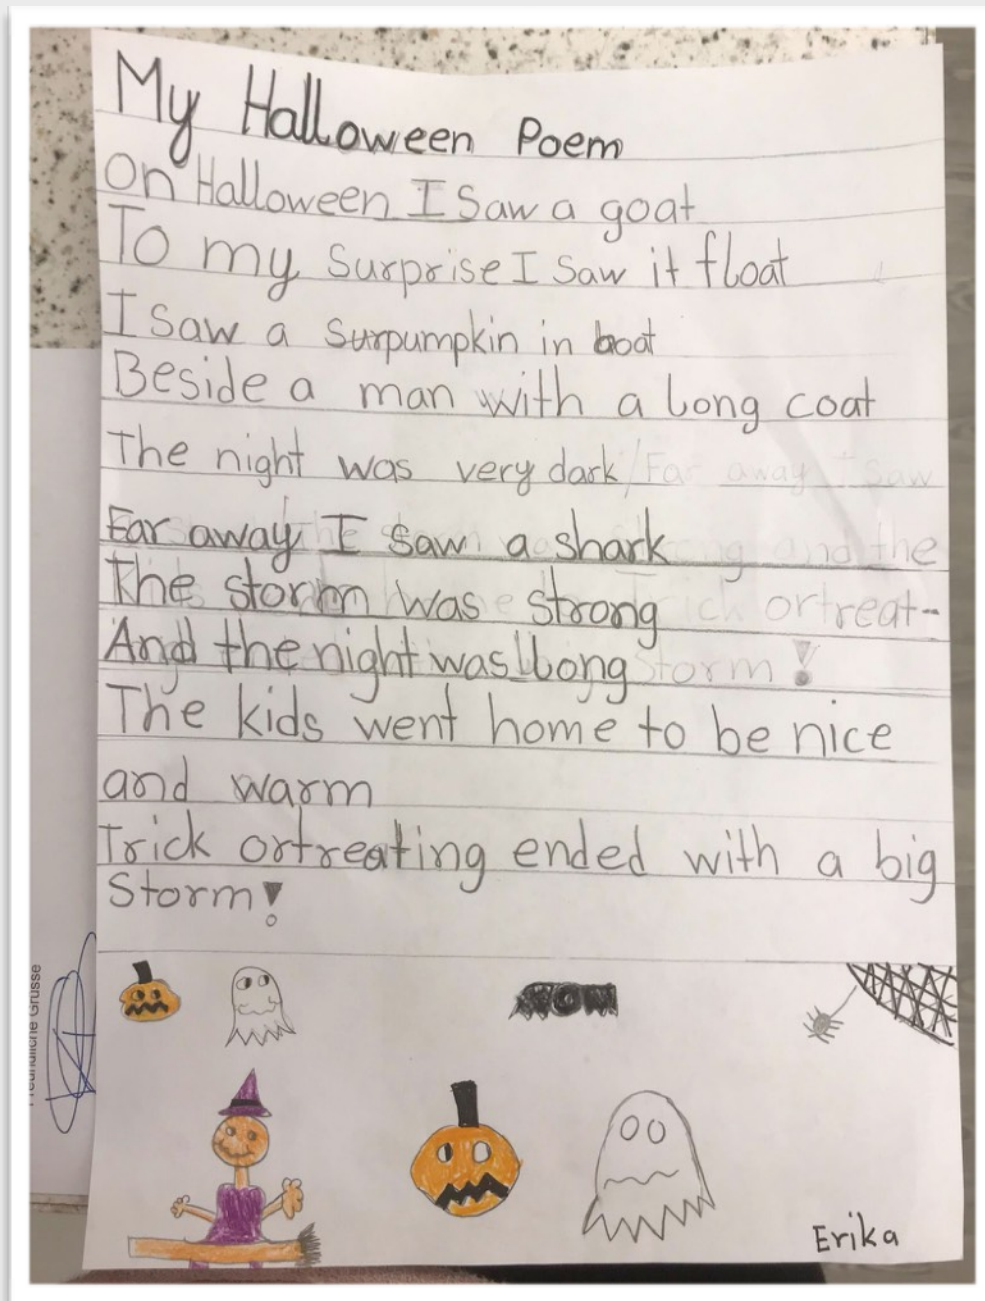 My Halloween Poem
On Halloween I Saw a goat
To my Surprise I Saw it float
I Saw a Surpumpkin in boat
Beside a man with a long coat
The night was very dark/Far away I Saw
Far away I Saw a shark and the
The storm was strong Trick ortreat--
And the night was long storm!
The kids went home to be nice
and warm
Trick ortreating ended with a big
Storm!
Erika
Freundliche Grüsse